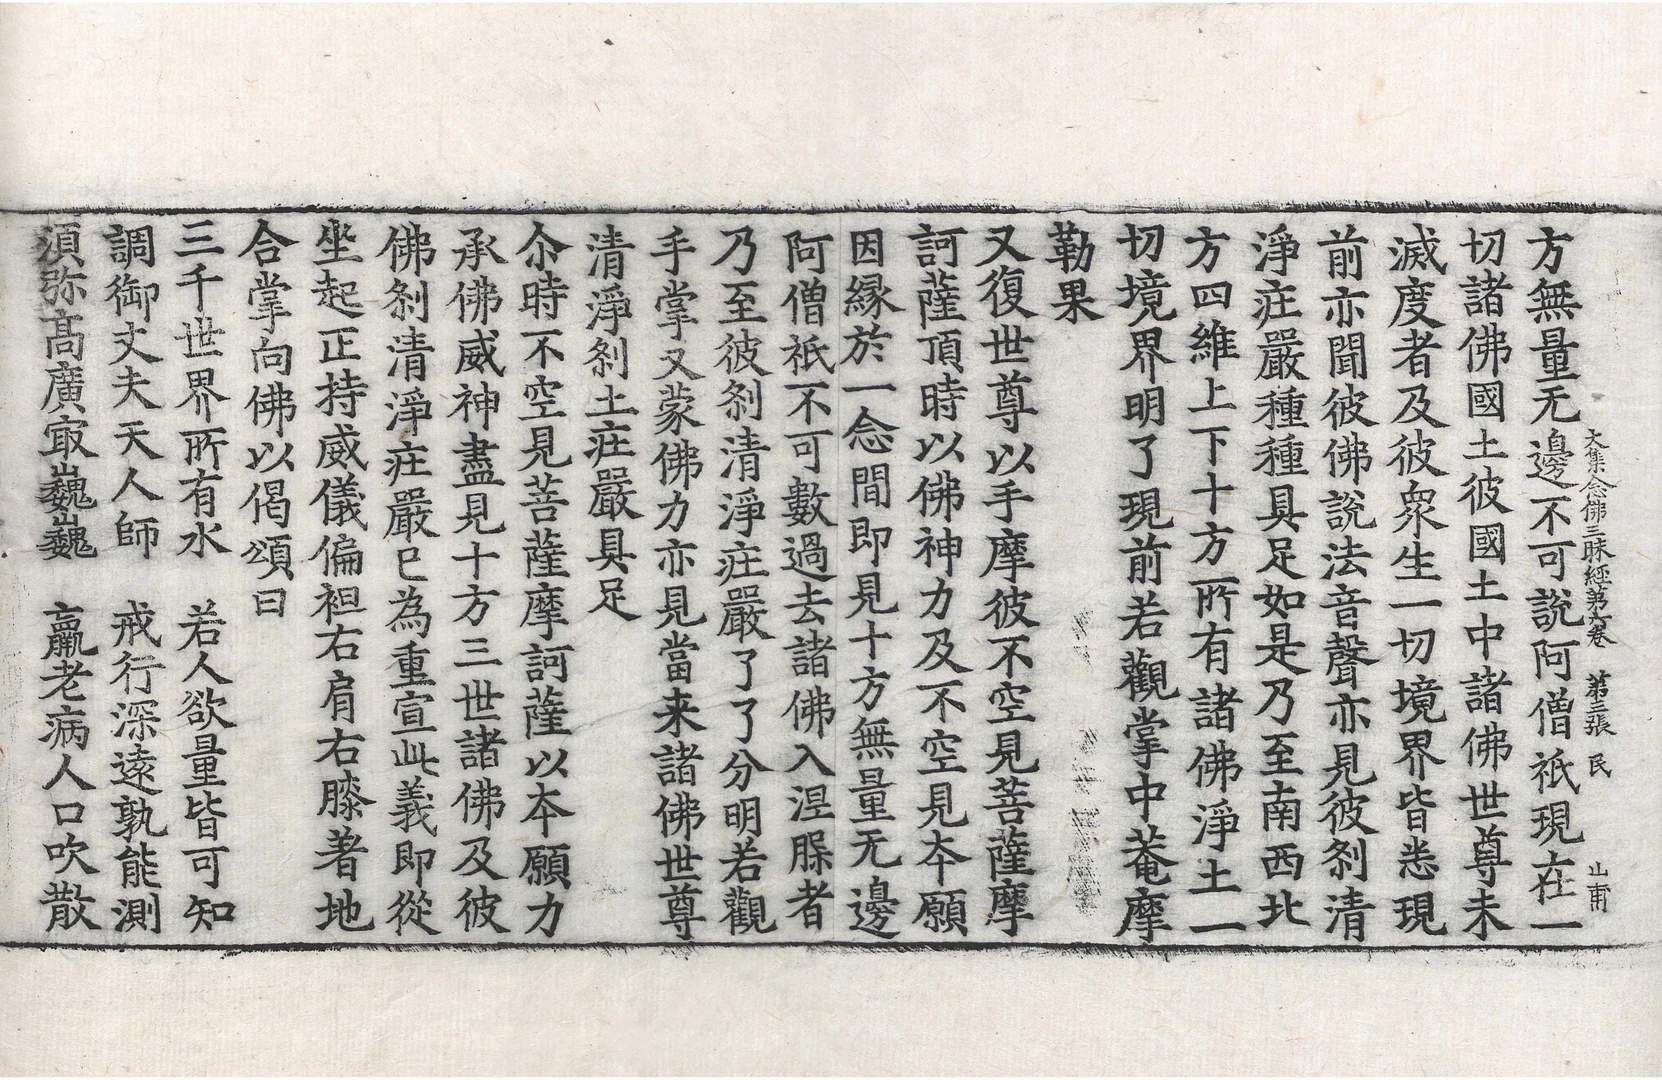 大集念佛三昧經第六卷 第三張 民 山甫
方無量无邊不可說阿僧祇現在一
切諸佛國土彼國土中諸佛世尊未
滅度者及彼衆生一切境界皆悉現
前亦聞彼佛說法音聲亦見彼刹清
淨莊嚴種種具足如是乃至南西北
方四維上下十方所有諸佛淨土一
切境界明了現前若觀掌中菴摩
勒果
又復世尊以手摩彼不空見菩薩摩
訶薩頂時以佛神力及不空見本願
因緣於一念間即見十方無量无邊
阿僧祇不可數過去諸佛入涅槃者
乃至彼刹清淨莊嚴了了分明若觀
手掌又蒙佛力亦見當来諸佛世尊
清淨刹土莊嚴具足
尒時不空見菩薩摩訶薩以本願力
承佛威神盡見十方三世諸佛及彼
佛刹清淨莊嚴已為重宣此義即從
坐起正持威儀偏袒右肩右膝著地
合掌向佛以偈頌曰
三千世界所有水 若人欲量皆可知
調御丈夫天人師 戒行深遠孰能測
湏弥高廣寂巍巍 羸老病人口吹散